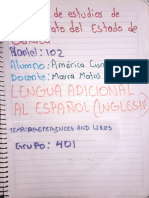 de estudios de
del Estado de
Plantel: 102
Alumno: América
Docente: Marra Matus
LENGUA ADICIONAL
AL ESPAÑOL (INGLES)
AND LIKES
GruPo: 401